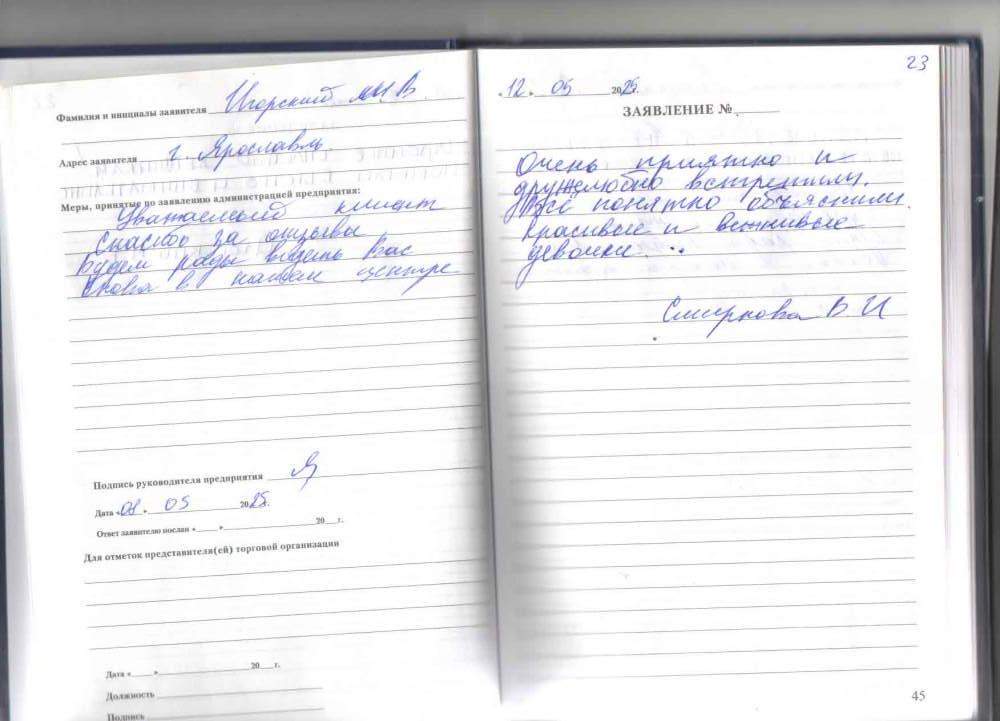 Фамилия и инициалы заявителя Игорский М.В.
Адрес заявителя г. Ярославль
Меры, принятые по заявлению администрацией предприятия:
Уважаемый клиент
Спасибо за отзывы
Будем рады видеть Вас
снова в нашем центре
Подпись руководителя предприятия
Дата « » 05 2025г.
Ответ заявителю послан «____»____________20___г.
Для отметок представителя(ей) торговой организации
Дата «____»____________20___г.
Должность
Подпись
23
«12» 05 2025г.
ЗАЯВЛЕНИЕ №
Очень приятно и
дружелюбно встретили.
Всё понятно объяснили.
Красивые и вежливые
девочки...
Смирнова В И
45